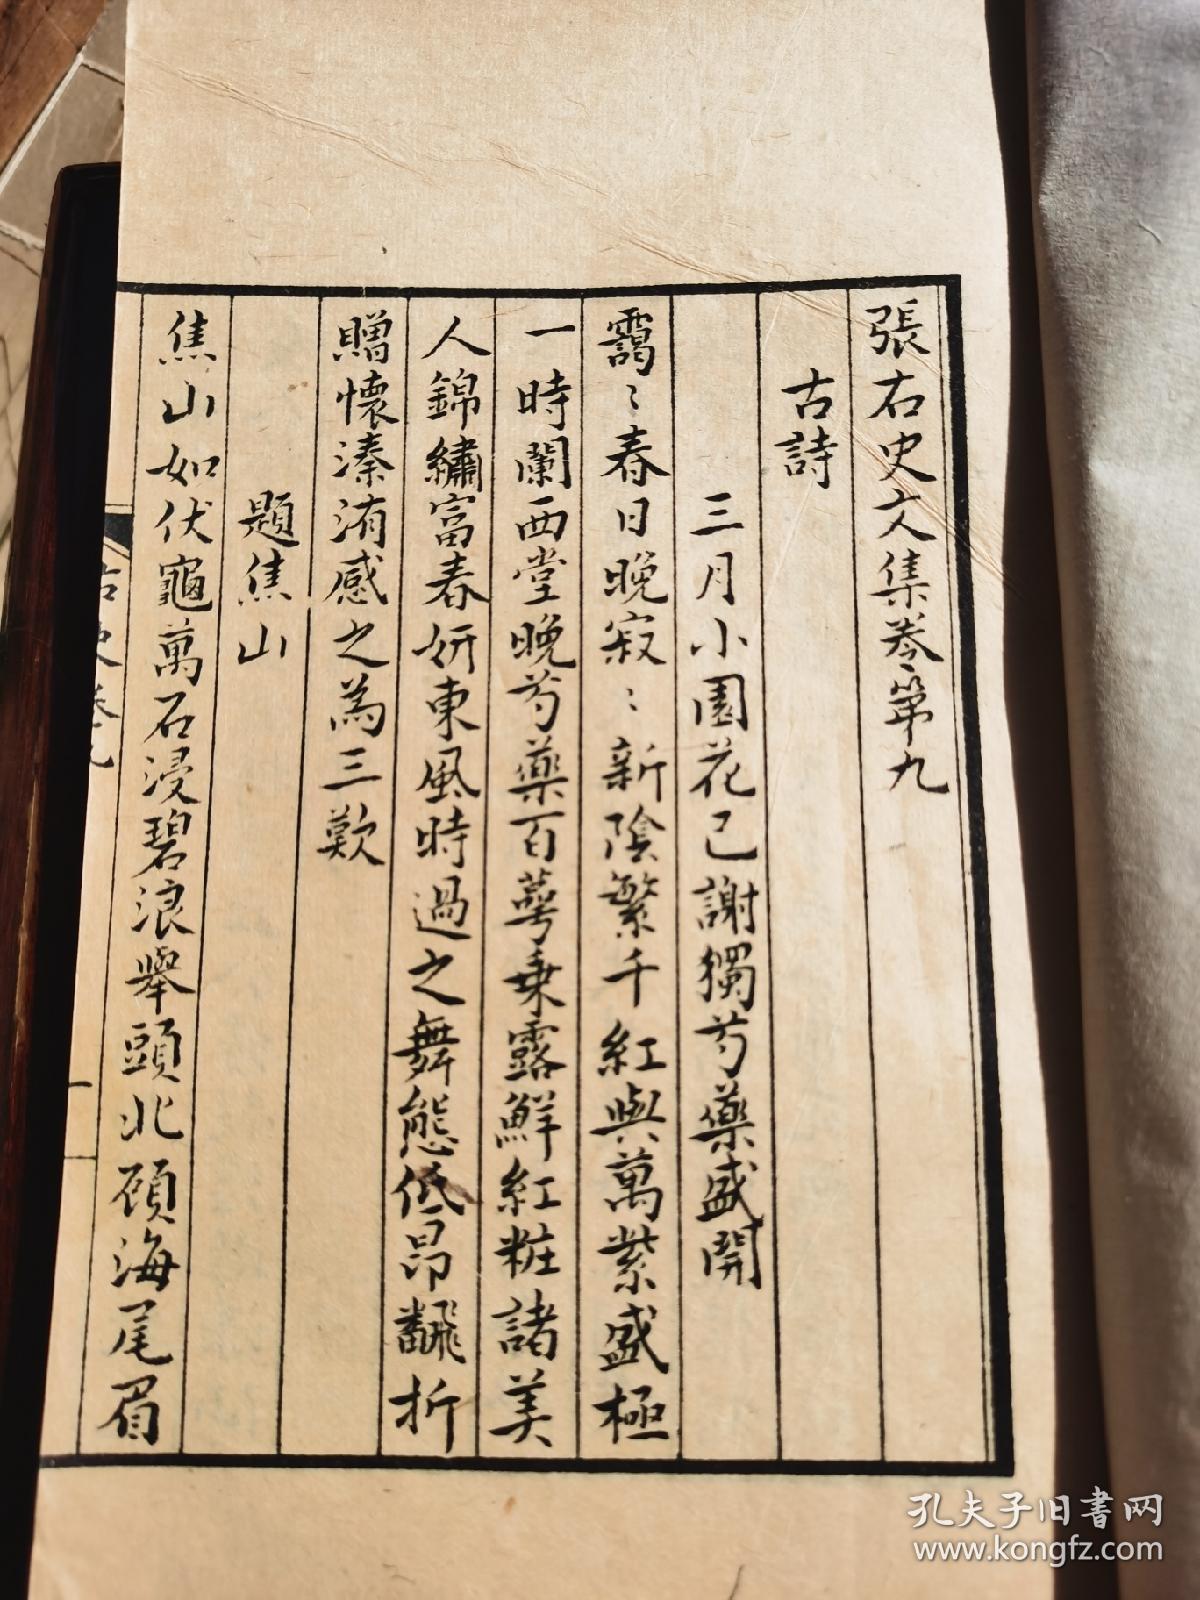 張右史文集卷第九
古詩
三月小園花已謝獨芍藥盛開
靄〻春日晚寂〻新陰繁千紅與萬紫盛極
一時闌西堂晚芍藥百萼乗露鮮紅粧諸美
人錦繡富春妍東風時過之舞態低昂翻折
贈懷溱洧感之為三歎
題焦山
焦山如伏龜萬石浸碧浪舉頭北顧海尾眉
右史卷九
一
孔夫子旧書网
www.kongfz.com